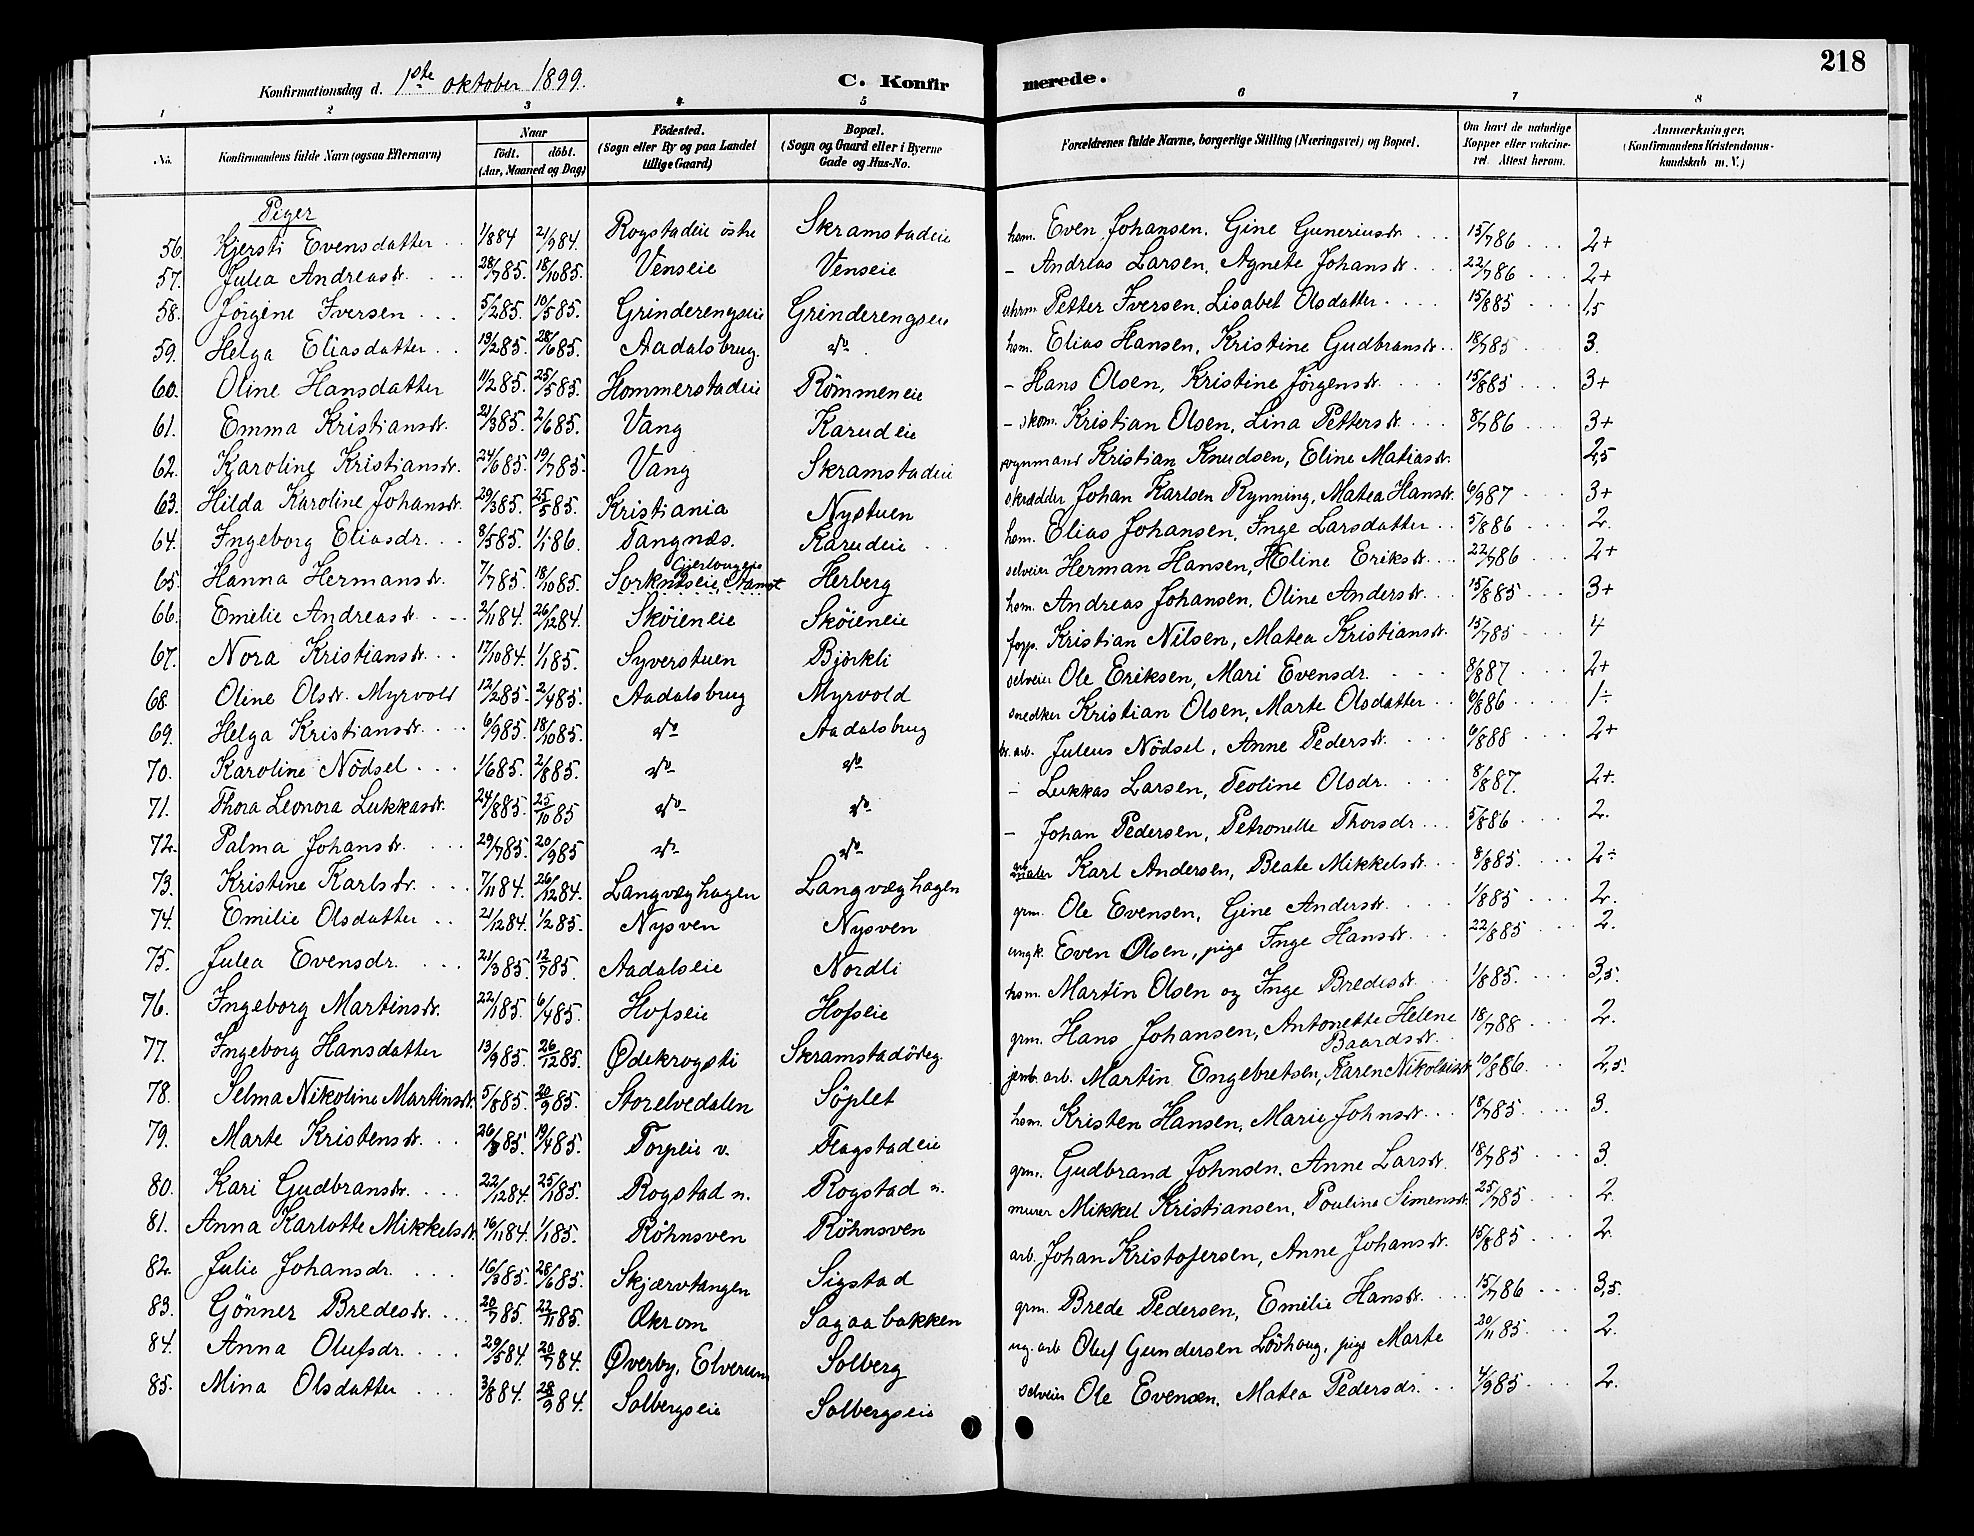 218
Konfirmationsdag d. 1ste oktober 1899. C. Konfirmerede.
1 2 3 4 5 6 7 8
No. Konfirmandens fulde Navn (ogsaa Efternavn) Naar födt. döbt. (Aar, Maaned og Dag) Födested. (Sogn eller By og paa Landet tillige Gaard) Bopæl. (Sogn og Gaard eller i Byerne Gade og Hus-No. Forældrenes fulde Navne, borgerlige Stilling (Næringsvei) og Bopæl. Om havt de naturlige Kopper eller vakcineret. Attest herom. Anmærkninger. (Konfirmandens Kristendomskundskab m. V.)
Piger
56. Kjersti Evensdatter 1/8 84 21/9 84. Rogstadeie östre Skramstadeie hsm. Even Johansen, Gine Guneriusdr. 15/7 86 2+
57. Julia Andreasdr. 28/7 85. 18/10 85. Venseie Venseie - Andreas Larsen, Agnete Johansdr. 22/7 86 2+
58. Jörgine Iversen 5/2 85. 10/5 85. Grinderengseie Grinderengseie Petter Iversen, Lisabet Olsdatter 15/8 85 1,5
59. Helga Eliasdatter 19/2 85. 28/6 85. Aadalsbrug. do hsm. Elias Hansen, Kristine Gudbransdr. 18/7 85 3.
60. Oline Hansdatter 11/2 85. 25/5 85. Hommerstadeie Römmeneie - Hans Olsen, Kristine Jörgensdr. 15/8 85 3+
61. Emma Kristiansdr. 21/3 85. 2/6 85. Vang Karudeie - skom. Kristian Olsen, Lina Pettersdr. 8/7 86 3+
62. Karoline Kristiansdr. 24/6 85. 19/7 85. Vang Skramstadeie sogumand Kristian Knudsen, Eline Matiasdr. 2,5
63. Hilda Karoline Johansdr. 29/3 85. 25/5 85. Kristiania Nystuen skrædder Johan Karlsen Rynning, Matea Hansdr. 6/9 87 3+
64. Ingeborg Eliasdr. 8/5 85. 1/1 86. Tangnæs. Karudeie hsm. Elias Johansen, Inge Larsdatter 5/8 86 2.
65. Hanna Hermansdr. 7/7 85. 18/10 85. Sorknæseie, Aamot Herberg selveier Herman Hansen, Heline Eriksdr. 22/7 86 2+
66. Emelie Andreasdr. 2/11 84. 26/12 84. Sköieneie Sköieneie hsm. Andreas Johansen, Oline Andersdr. 15/8 85 3+
67. Nora Kristiansdr. 17/10 84. 1/1 85. Syverstuen Björkli forp. Kristian Nilsen, Matea Kristiansdr. 15/7 85 4
68. Oline Olsdr. Myrvold 12/2 85. 2/4 85. Aadalsbrug Myrvold selveier Ole Eriksen, Mari Evensdr. 8/8 87 2+
69. Helga Kristiansdr. 6/9 85. 18/10 85. do Aadalsbrug snedker Kristian Olsen, Marte Olsdatter 6/8 86 1÷
70. Karoline Nödsel 1/6 85. 2/8 85. do do br. arb. Julius Nödsel, Anne Pedersdr. 6/8 88 2+
71. Thora Leonora Lukkasdr. 24/8 85. 25/10 85 do do - Lukkas Larsen, Teoline Olsdr. 8/8 87. 2+.
72. Palma Johansdr. 29/7 85. 20/9 85 do do - Johan Pedersen, Petronelle Thorsdr 5/8 86 2.
73. Kristine Karlsdr. 7/11 84. 26/12 84. Langvæghagen Langvæghagen Karl Andersen, Beate Mikkelsdr. 8/8 85. 2÷
74. Emilie Olsdatter 21/12 84. 1/2 85. Nysven Nysven grm. Ole Evensen, Gine Andersdr. 1/8 85 2.
75. Julia Evensdr. 21/3 85. 12/7 85. Aadalseie Nordli ungk. Even Olsen, pige Inge Hansdr. 22/8 85 2.
76. Ingeborg Martinsdr. 22/1 85. 6/4 85. Hofseie Hofseie hsm. Martin Olsen og Inge Bredesdr. 1/8 85. 3,5.
77. Ingeborg Hansdatter 13/9 85. 26/12 85. Ødekrogsti Skramstadödeg. grm. Hans Johansen, Antonette Helene Baardsdr. 18/7 88 2.
78. Selma Nikoline Martinsdr. 5/8 85. 20/9 85. Storelvedalen Söplet jernb. arb. Martin Engebretsen, Karen Nikolaisdr. 10/8 86. 2,5.
79. Marte Kristensdr. 26/3 85. 19/4 85. Torpeie v. Flagstadeie hsm. Kristen Hansen, Marie Johnsdr. 18/7 85. 3.
80. Kari Gudbransdr. 22/12 84. 25/1 85. Rogstad n. Rogstad n. grm. Gudbrand Johnsen, Anne Larsdr. 18/7 85 3.
81. Anna Karlotte Mikkelsdr. 16/11 84. 1/1 85. Röhnsven Röhnsven murer Mikkel Kristiansen, Pouline Simensdr. 25/7 85 2.
82. Julie Johansdr. 16/3 85. 28/6 85. Skjærvtangen Sigstad arb. Johan Kristofersen, Anne Johansdr. 15/8 85 2.
83. Gönner Bredesdr. 20/7 85. 22/11 85. Økrom Sagaabakken grm. Brede Pedersen, Emilie Hansdr. 15/7 86 3,5.
84. Anna Olufsdr. 29/5 84. 20/7 84. Øverby, Elverum Solberg ug. arb Oluf Gundersen Lövhaug, pige Marte 20/11 85. 2.
85. Mina Olsdatter 3/8 84. 28/9 84. Solbergseie Solbergseie selveier Ole Evensen, Matea Pedersdr. 4/9 85 2.